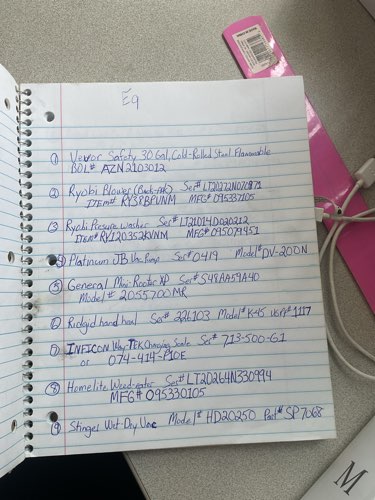 Eq
① Vevor Safety 30 Gal, Cold-Rolled Steel Flammable
BOL# AZN2103012
② Ryobi Blower (Back-pak) Ser# LT20272N070871
ITEM# RY38BPVNM MFG# 095337105
③ Ryobi Pressure washer Ser# LT21014D020212
ITEM# RY120352KVNM MFG# 095079451
④ Platinum JB Vac Pump Ser# 0419 Model# DV-200N
⑤ General Mini-Rooter XP Ser# S48AA59A40
Model# 2055700MR
⑥ Ridgid hand haul Ser# 226103 Model# K45 1117
⑦ INFICON Way-TEK Charging Scale Ser# 713-500-G1
or 074-414-P10E
⑧ Homelite Weed-eater Ser# LT20264N330994
MFG# 095330105
⑨ Stinger Wet-Dry Vac Model# HD20250 Part# SP7068
M